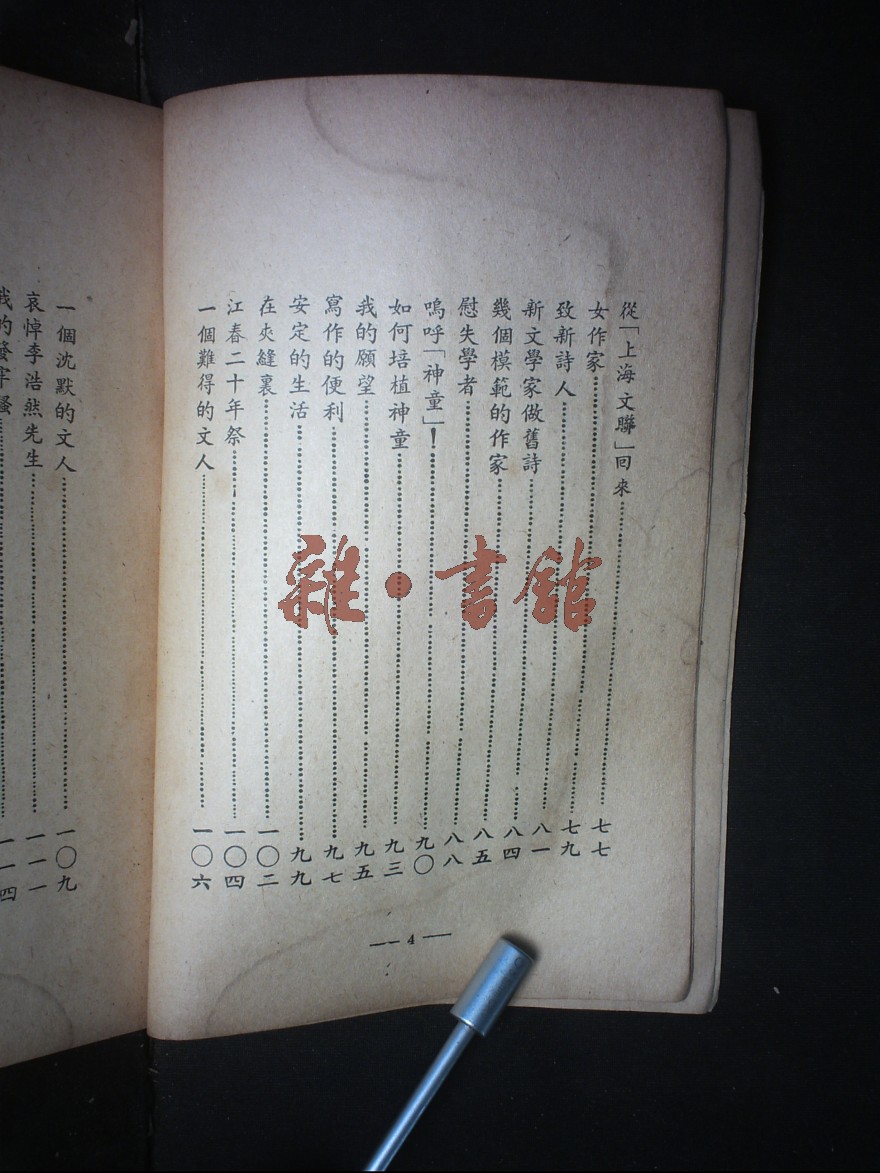 從「上海文聯」回來……七七
女作家……七九
致新詩人……八一
新文學家做舊詩……八四
幾個模範的作家……八五
慰失學者……八八
嗚呼「神童」！……九〇
如何培植神童……九三
我的願望……九五
寫作的便利……九七
安定的生活……九九
在夾縫裏……一〇二
江春二十年祭……一〇四
一個難得的文人……一〇六
— 4 —
一個沈默的文人……一〇九
哀悼李浩然先生……一一一
我的發牢騷……一一四
雜·書館